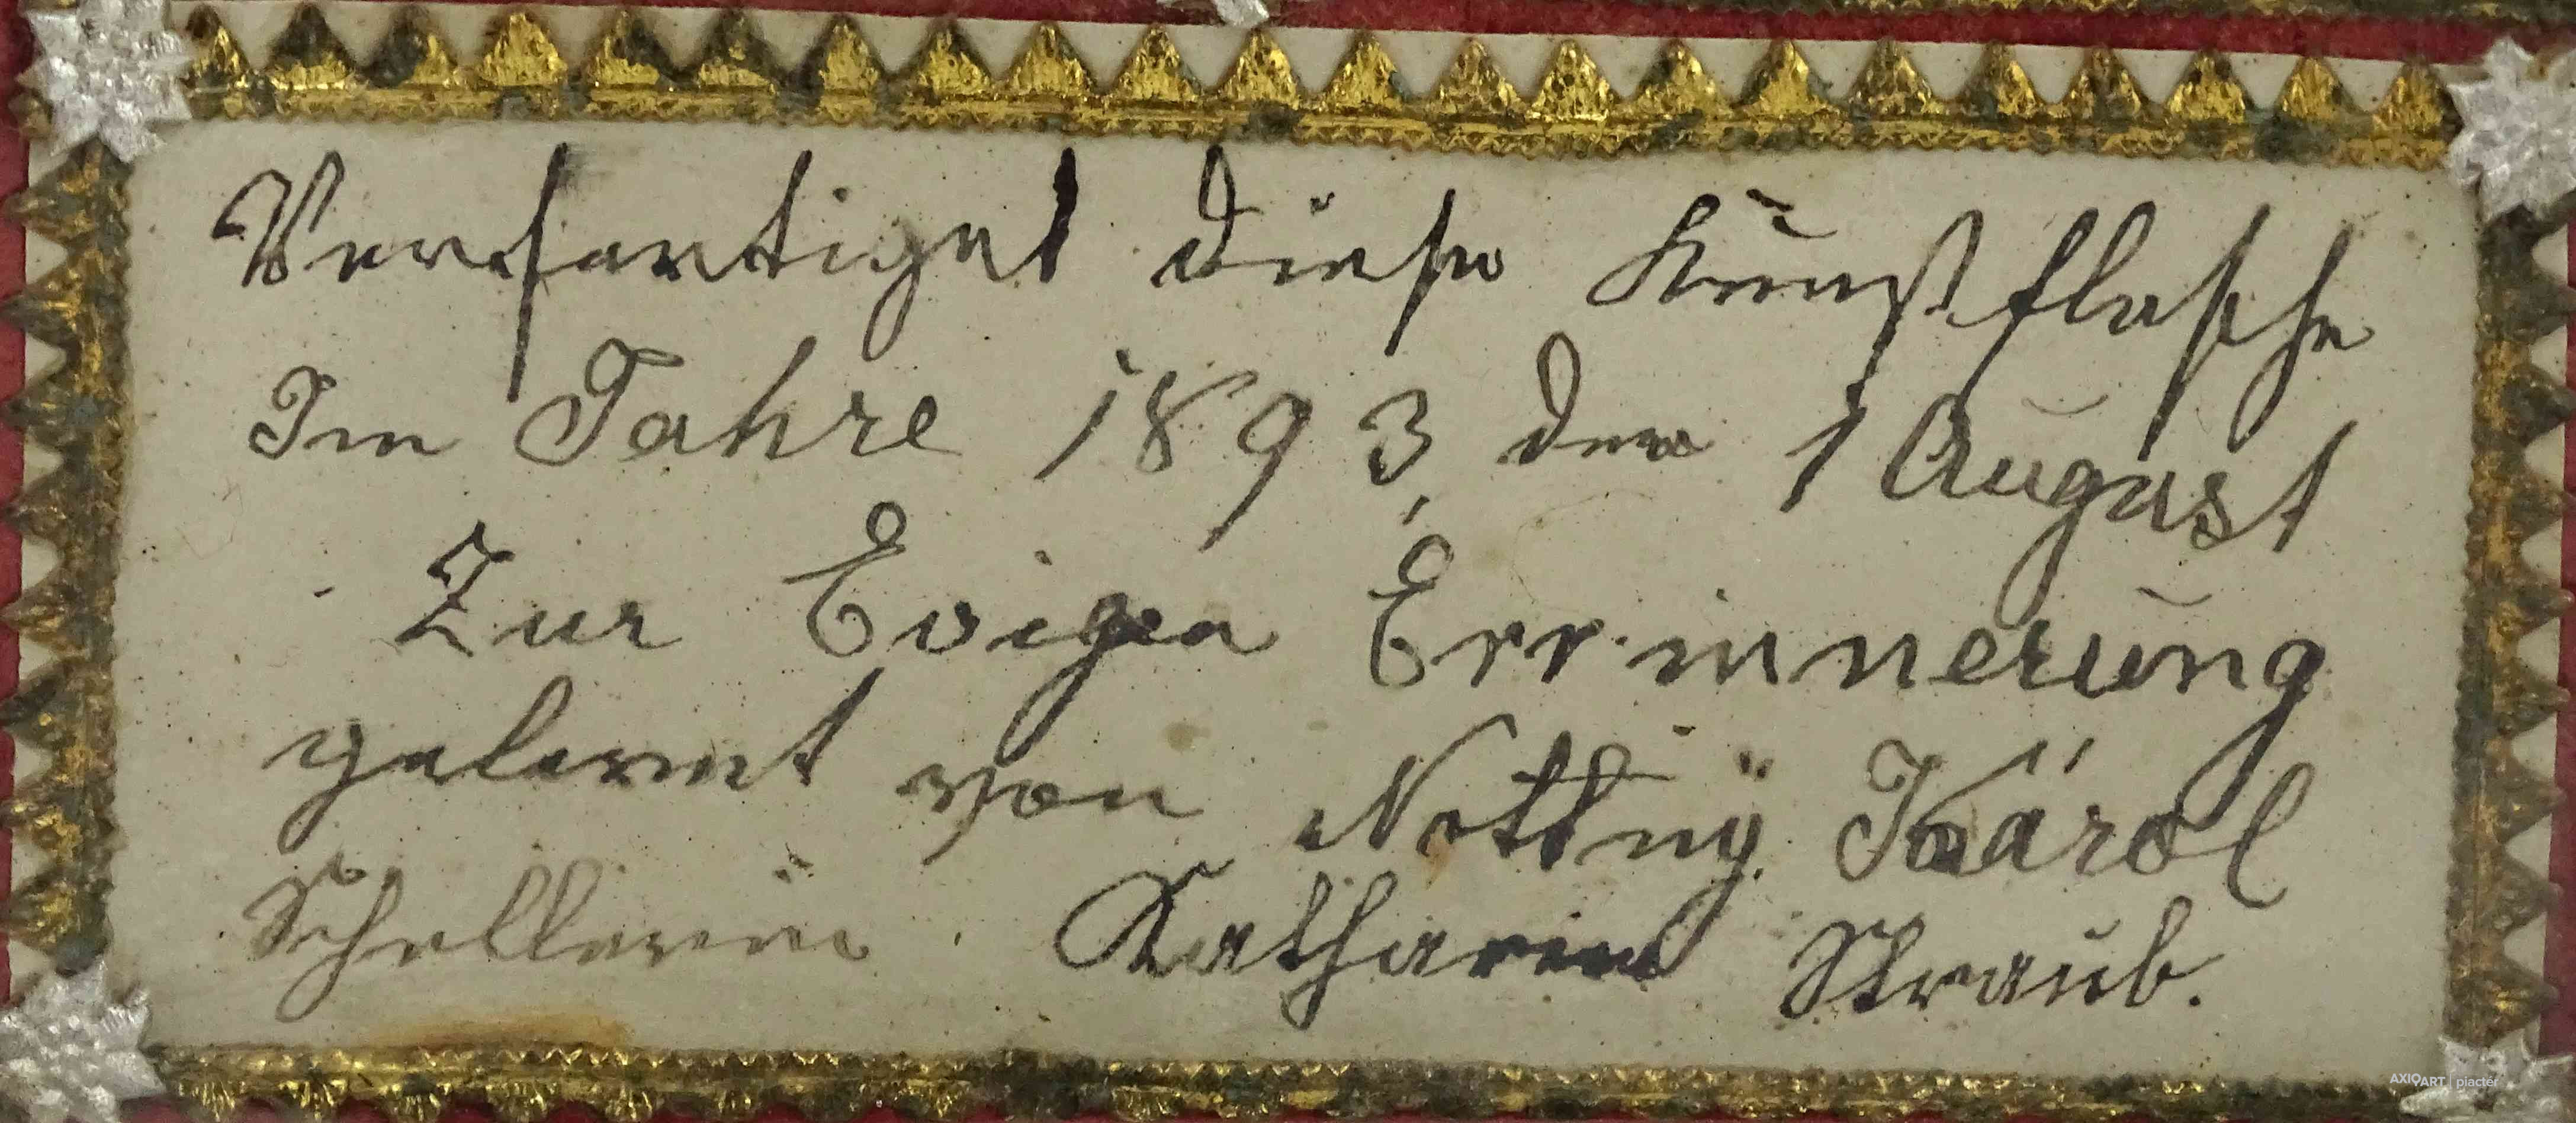 Verfertiget diese Kunstflasche
Im Jahre 1893, den 1 August
Zur Evigen Errinnerung
gelernt von Károl
Schellerin Katharina Straub.
AXIOART piactér